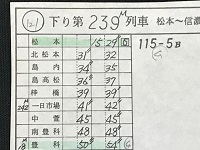 121 下り第 239M 列車 松本~信濃
松本 15 29 6 115-5B
北松本 31 32
島内 34 35
島高松 36 37
梓橋 39 39
一日市場 41 42
中萱 45 45
南豊科 48 48
豊科 50 54